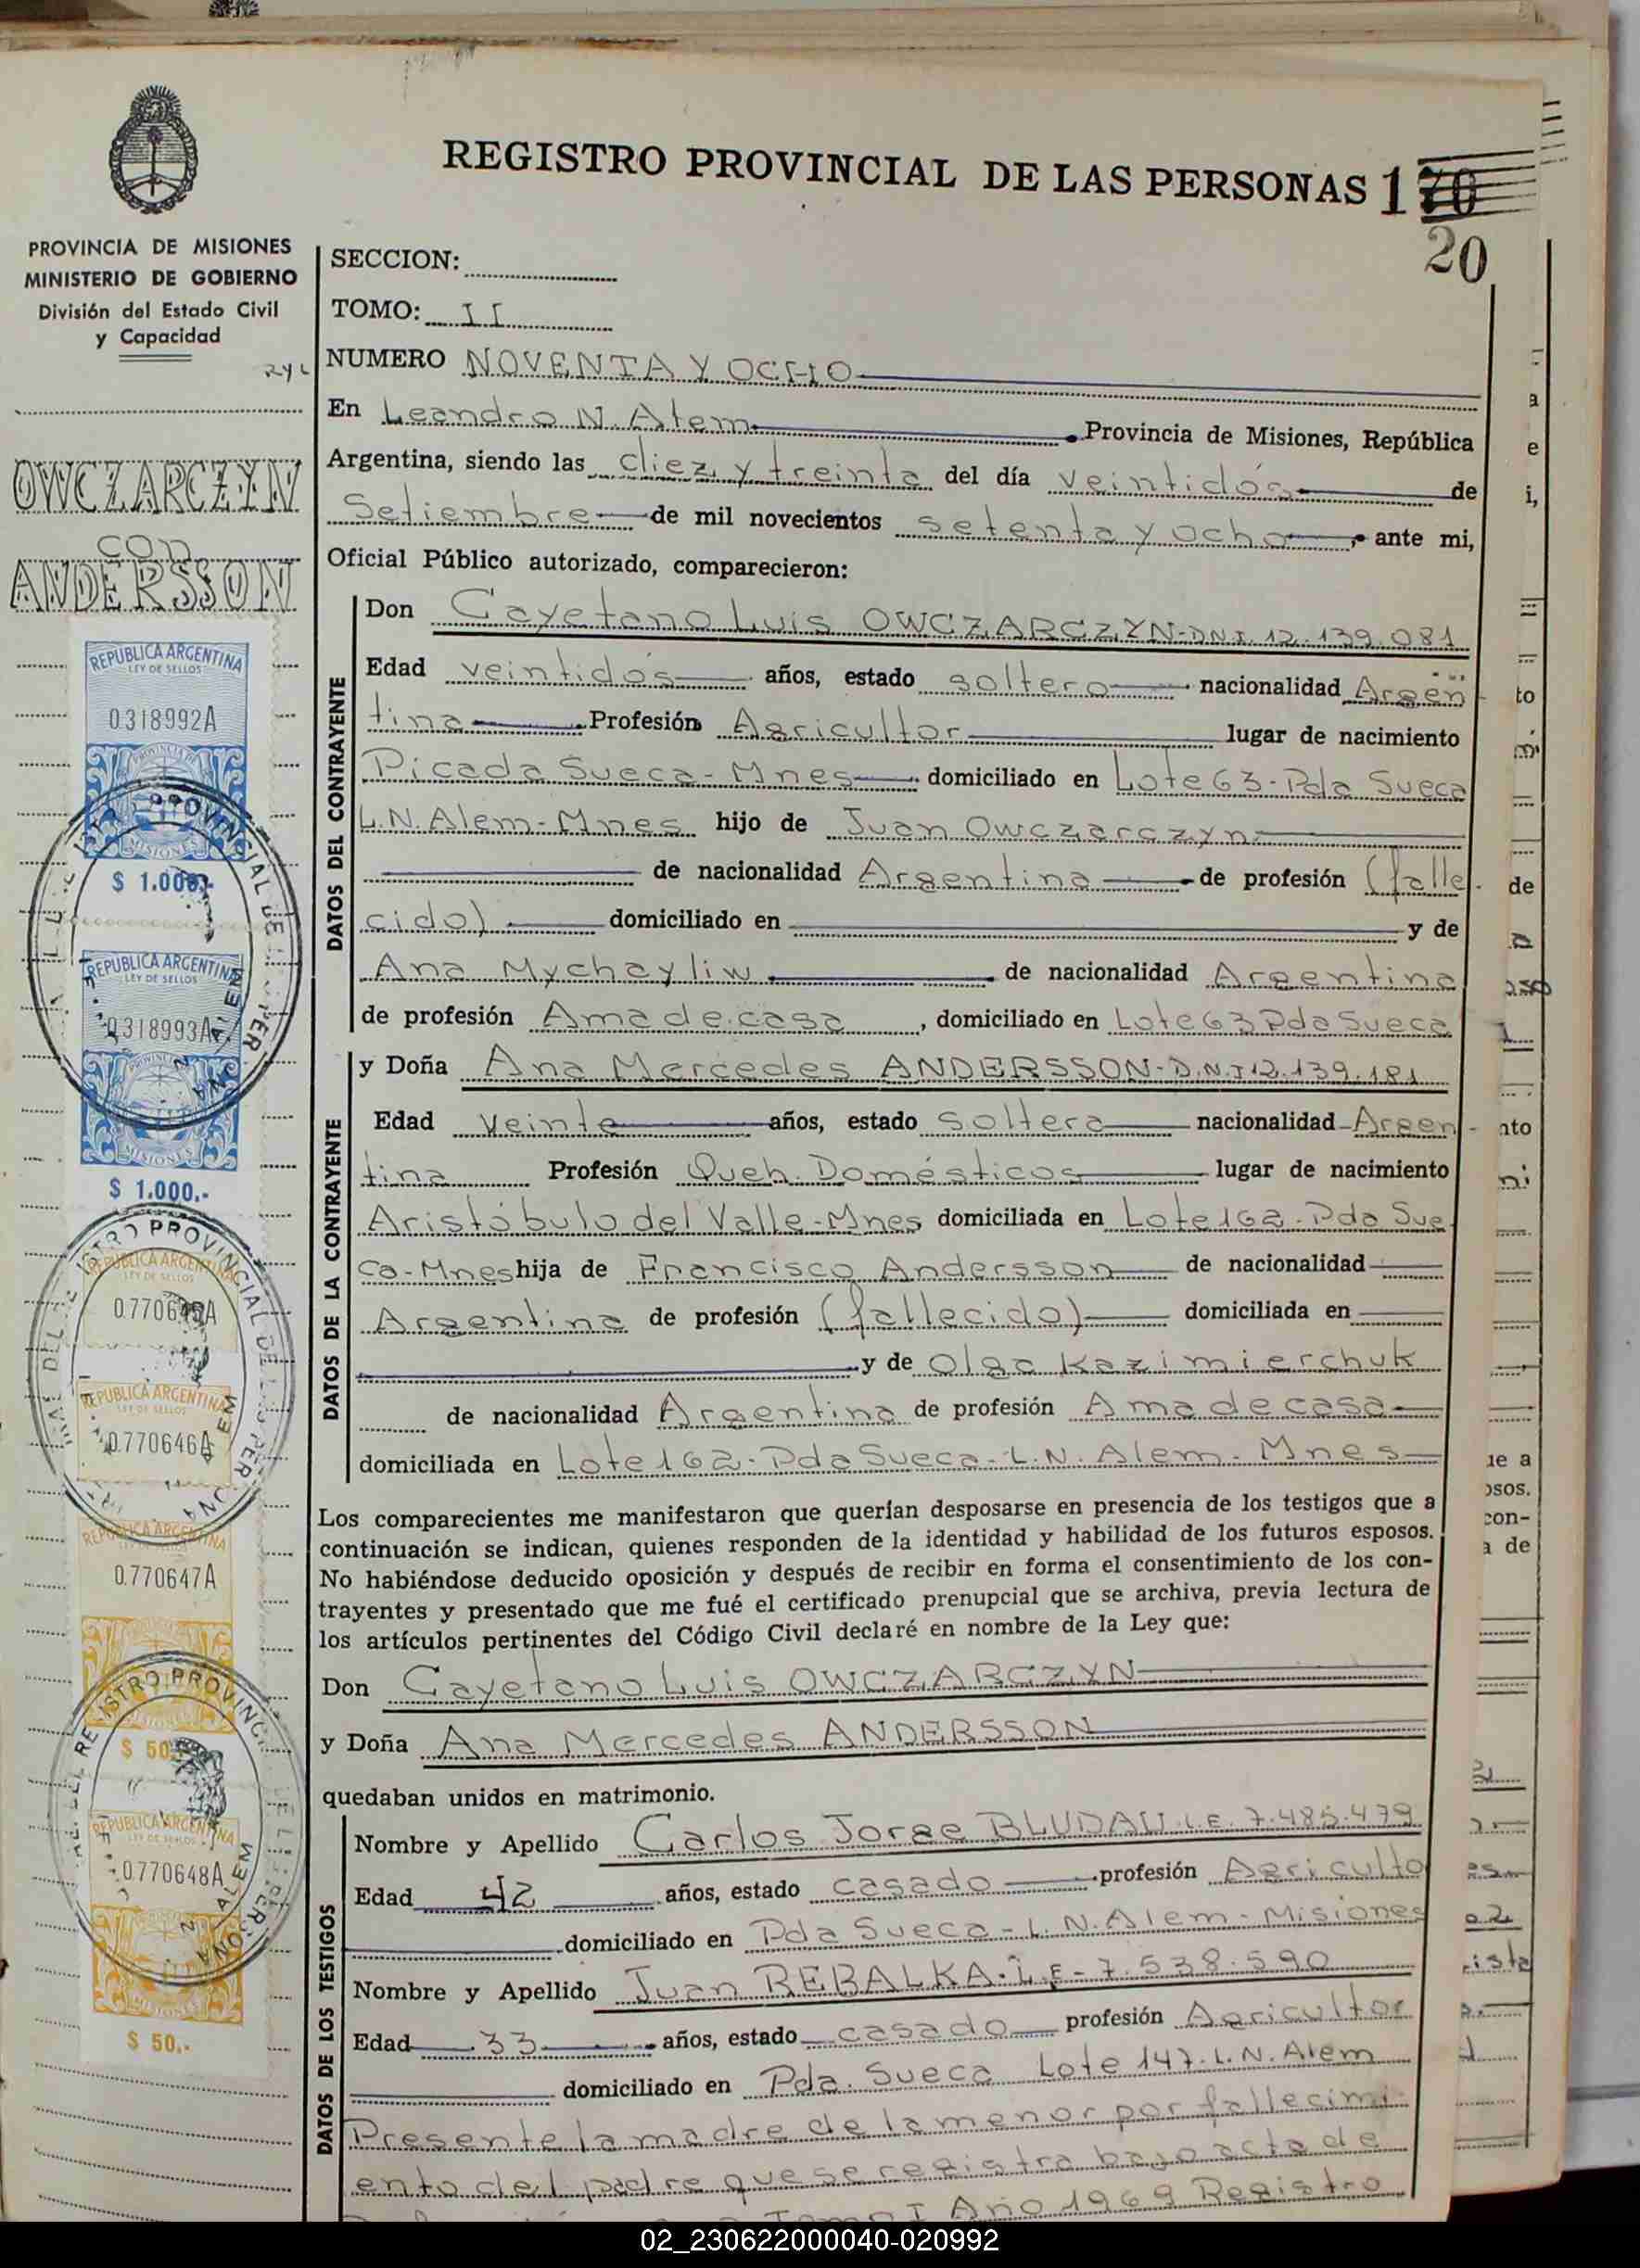 REGISTRO PROVINCIAL DE LAS PERSONAS 170
20
PROVINCIA DE MISIONES
MINISTERIO DE GOBIERNO
División del Estado Civil
y Capacidad
OWCZARCZYN
con
ANDERSSON
REPUBLICA ARGENTINA
LEY DE SELLOS
0.318992A
MISIONES
$ 1.000.-
REPUBLICA ARGENTINA
LEY DE SELLOS
0.318993A
MISIONES
$ 1.000.-
REPUBLICA ARGENTINA
LEY DE SELLOS
REPUBLICA ARGENTINA
LEY DE SELLOS
0.770646A
REPUBLICA ARGENTINA
0.770647A
MISIONES
$ 50.-
REPUBLICA ARGENTINA
LEY DE SELLOS
0.770648A
MISIONES
$ 50.-
SECCION:
TOMO: II
NUMERO NOVENTA Y OCHO
En Leandro N. Alem Provincia de Misiones, República
Argentina, siendo las diez y treinta del día veintidós de
Setiembre de mil novecientos setenta y ocho, ante mi,
Oficial Público autorizado, comparecieron:
DATOS DEL CONTRAYENTE
Don Cayetano Luis OWCZARCZYN-DNI. 12.139.081
Edad veintidos años, estado soltero nacionalidad Argen-
tina Profesión Agricultor lugar de nacimiento
Picada Sueca-Mnes domiciliado en Lote 63-Pda Sueca
L.N.Alem-Mnes hijo de Juan Owczarczyn
de nacionalidad Argentina de profesión (falle-
cido) domiciliado en y de
Ana Mychayliw de nacionalidad Argentina
de profesión Ama de casa, domiciliado en Lote 63 Pda Sueca
DATOS DE LA CONTRAYENTE
y Doña Ana Mercedes ANDERSSON-D.N.I 12.139.181
Edad veinte años, estado soltera nacionalidad Argen-
tina Profesión Queh. Domésticos lugar de nacimiento
Aristóbulo del Valle-Mnes domiciliada en Lote 162-Pda Sue
ca-Mnes hija de Francisco Andersson de nacionalidad
Argentina de profesión (fallecido) domiciliada en
y de Olga Kazimierchuk
de nacionalidad Argentina de profesión Ama de casa
domiciliada en Lote 162-Pda Sueca-L.N. Alem-Mnes
Los comparecientes me manifestaron que querían desposarse en presencia de los testigos que a
continuación se indican, quienes responden de la identidad y habilidad de los futuros esposos.
No habiéndose deducido oposición y después de recibir en forma el consentimiento de los con-
trayentes y presentado que me fué el certificado prenupcial que se archiva, previa lectura de
los artículos pertinentes del Código Civil declaré en nombre de la Ley que:
Don Cayetano Luis OWCZARCZYN
y Doña Ana Mercedes ANDERSSON
quedaban unidos en matrimonio.
DATOS DE LOS TESTIGOS
Nombre y Apellido Carlos Jorge BLUDAU L.E. 7.485.479
Edad 42 años, estado casado profesión Agriculto
domiciliado en Pda Sueca-L.N.Alem-Misiones
Nombre y Apellido Juan REBALKA.L.E-7.538.590
Edad 33 años, estado casado profesión Agricultor
domiciliado en Pda. Sueca Lote 147.L.N. Alem
Presente la madre de la menor por fallecimi
ento del padre que se registra bajo acta de
Tomo I Año 1969 Registro
02_230622000040-020992